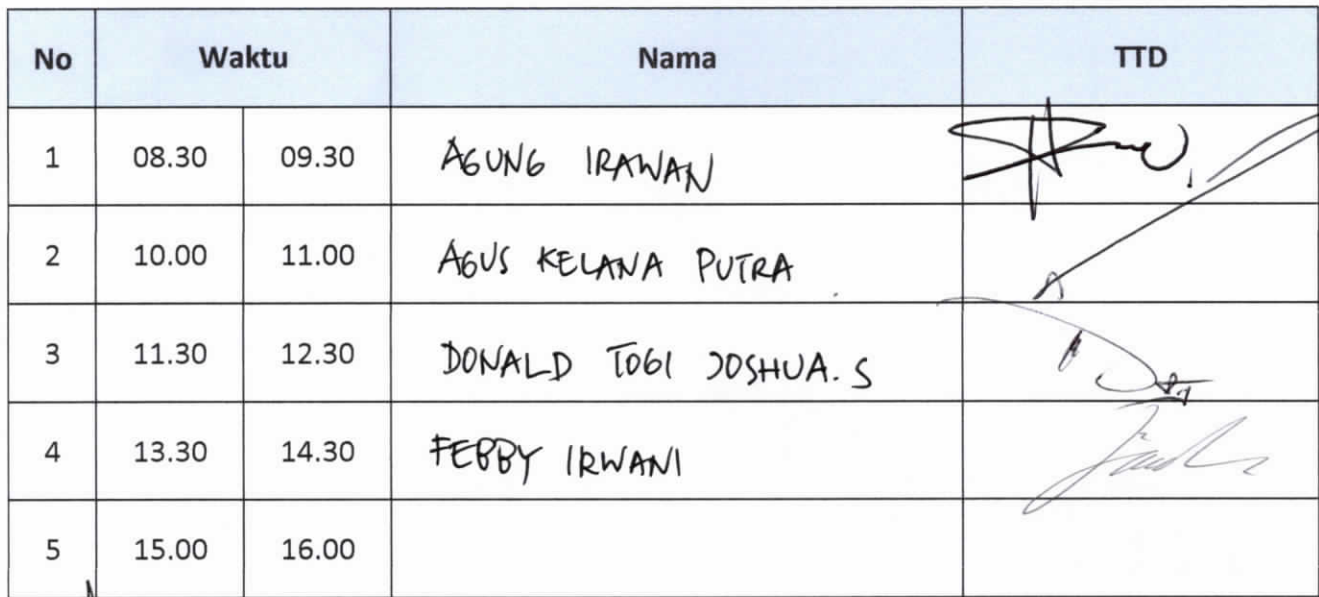 No Waktu Nama TTD
1 08.30 09.30 AGUNG IRAWAN
2 10.00 11.00 AGUS KELANA PUTRA
3 11.30 12.30 DONALD TOGI JOSHUA. S
4 13.30 14.30 FEBBY IRWANI
5 15.00 16.00